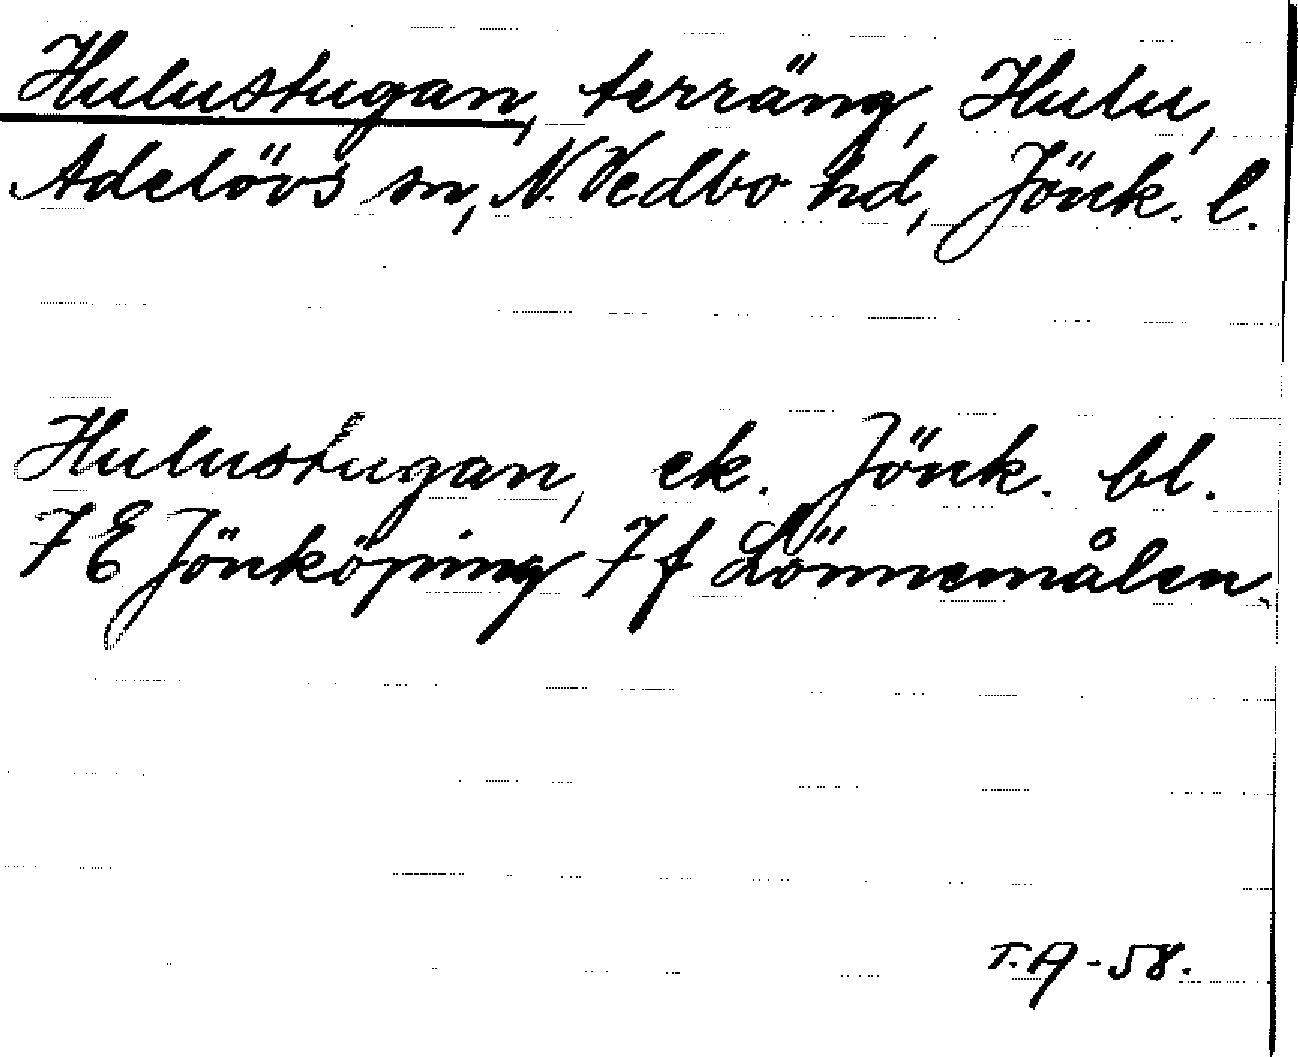 Hulustugan, terräng, Hulu,
Adelövs sn, N. Vedbo hd, Jönk. l.
Hulustugan, ek. Jönk. bl.
7 E Jönköping 7 f Lönnemålen.
T.A -58.